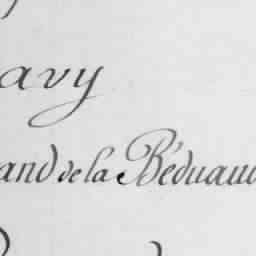 avy
and de la Béduau